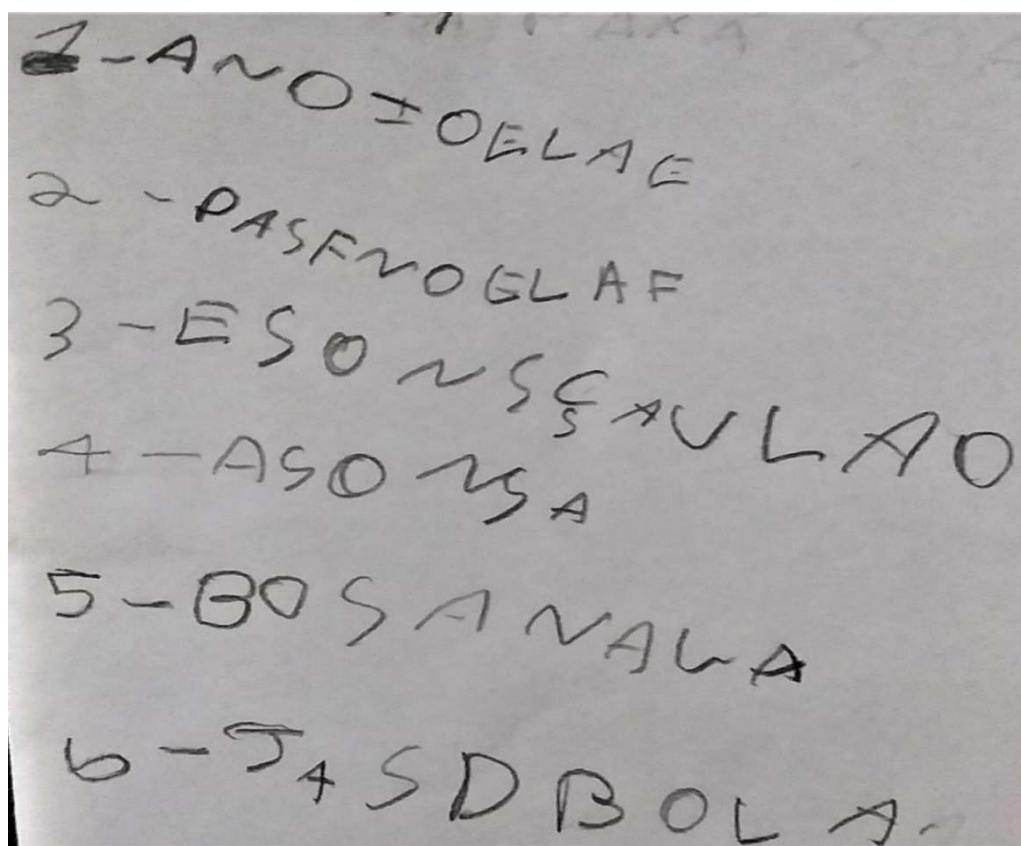 1-ANOIOELAE
2-PASFNOELAF
3-ESONSÇSAULAO
4-ASONSA
5-BOSANALA
6-JASDBOLA